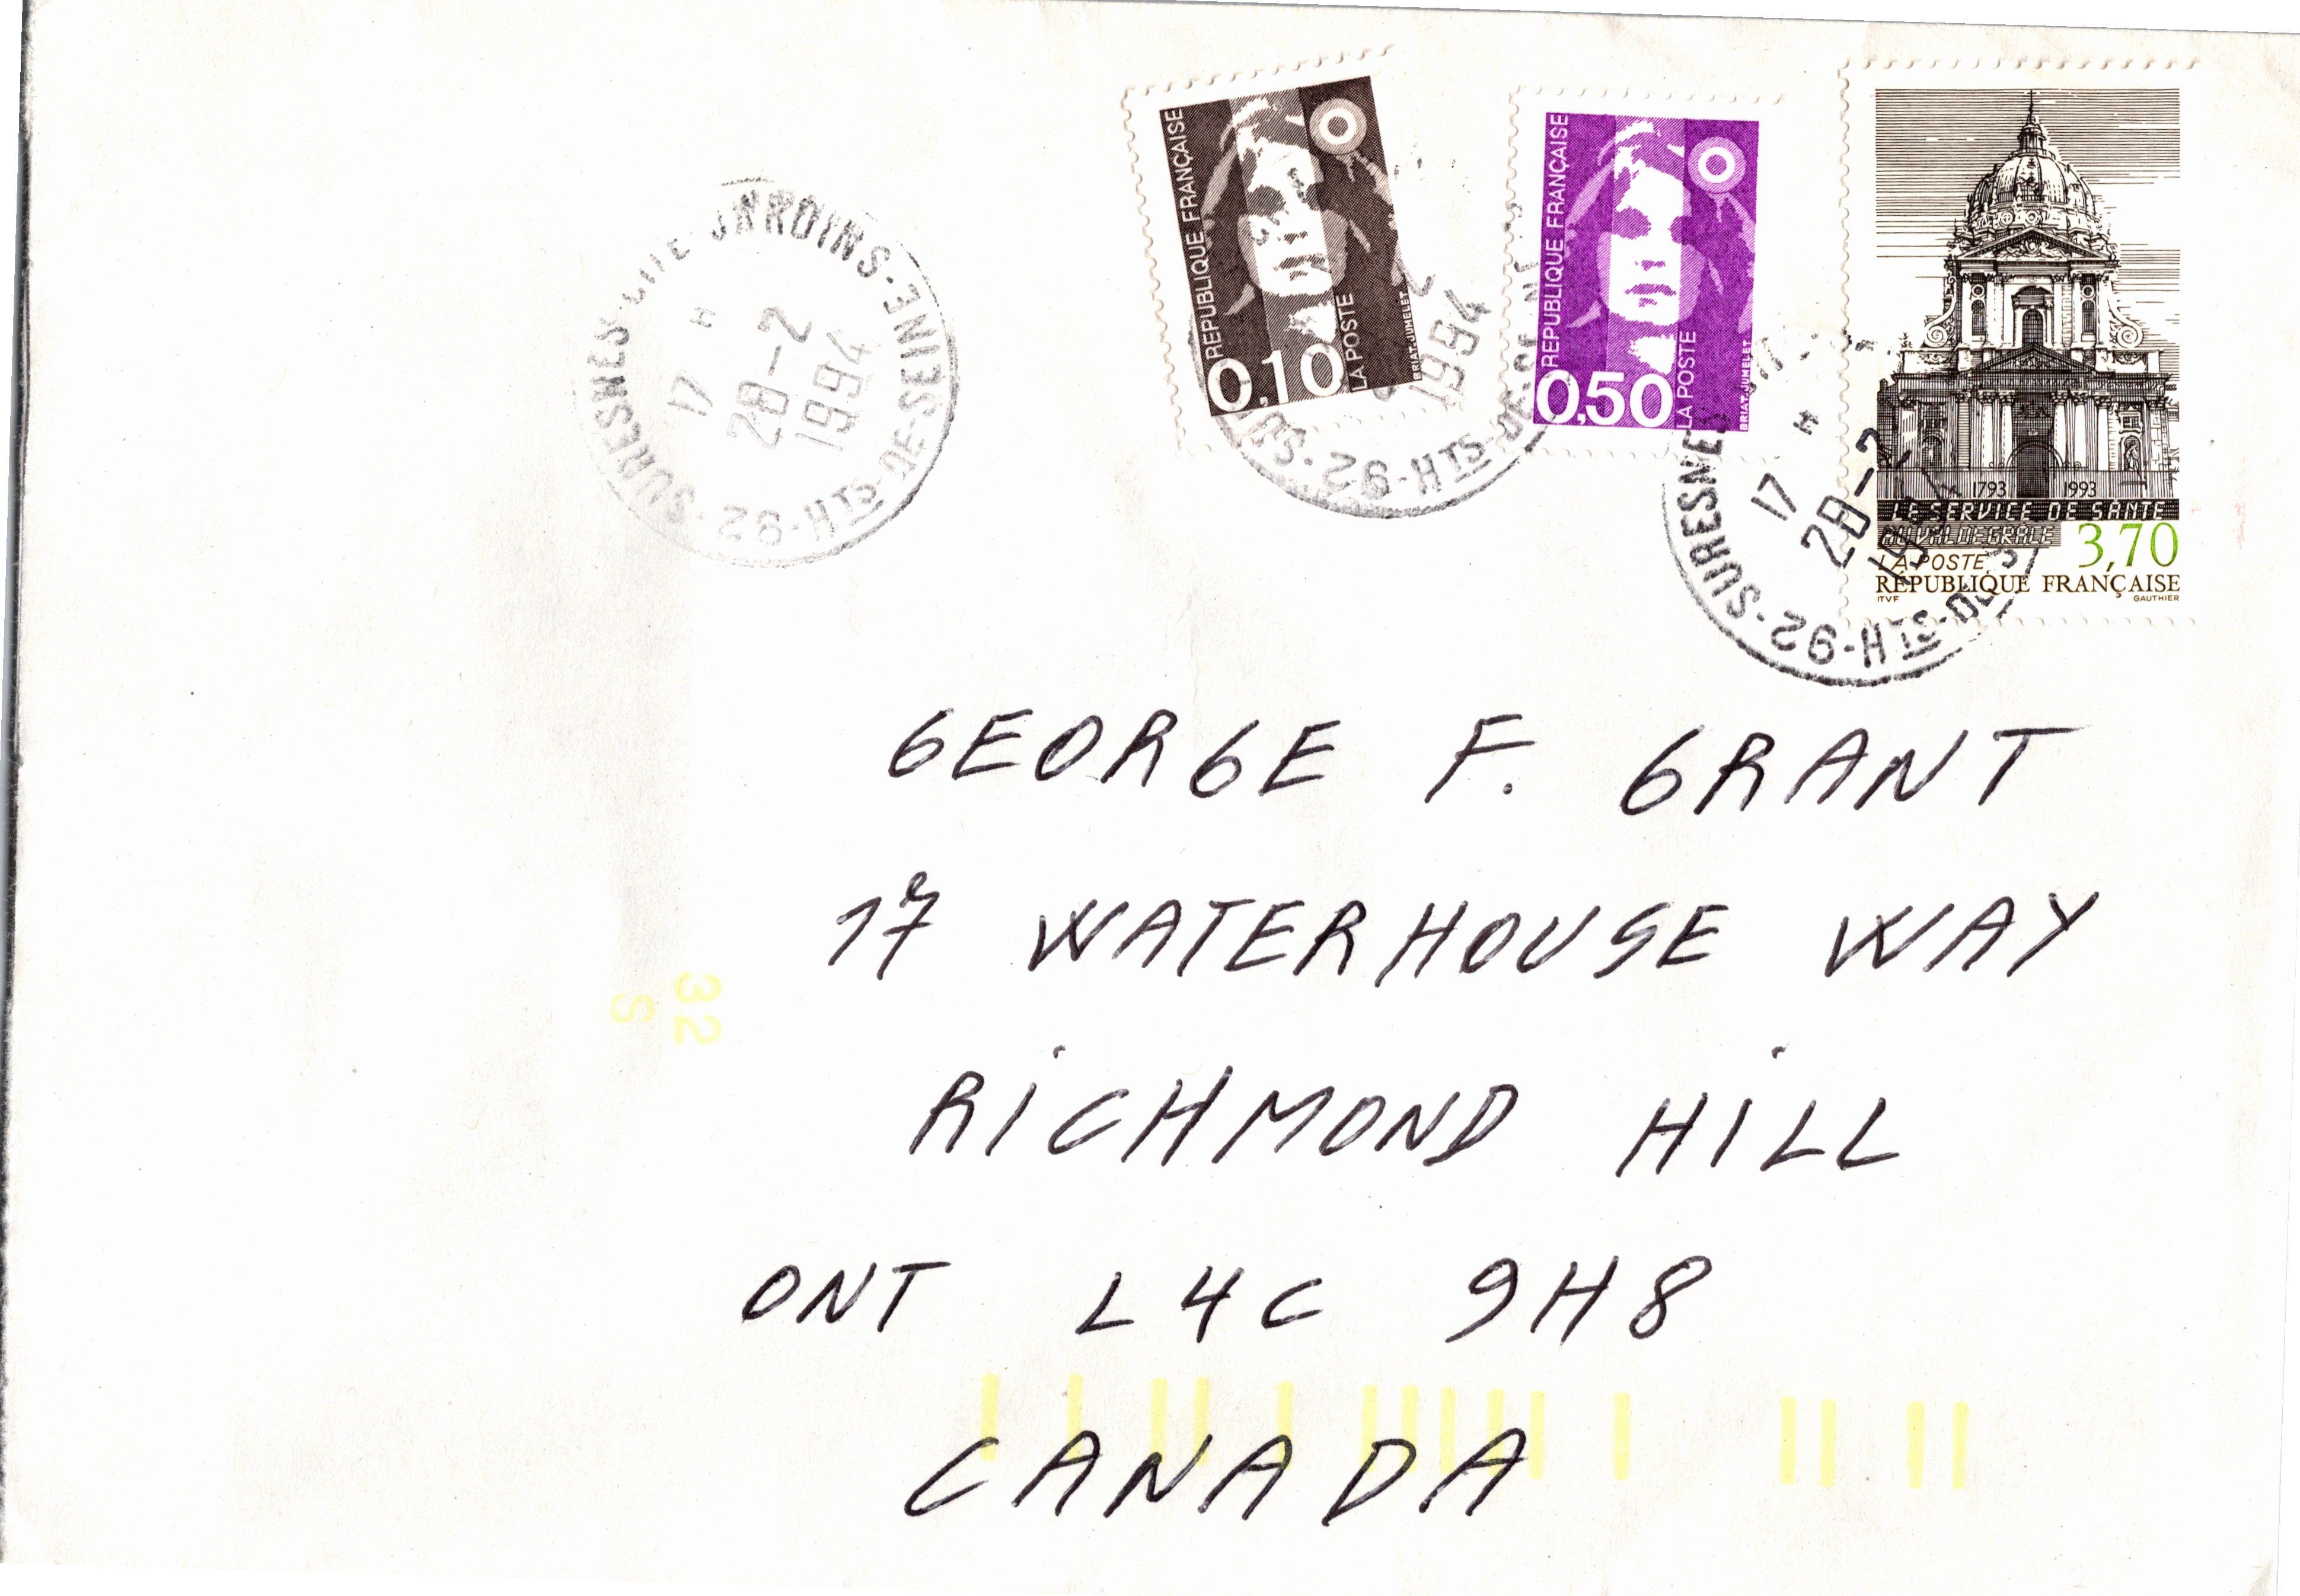 REPUBLIQUE FRANÇAISE
0,10
LA POSTE
BRIAT-JUMELET
REPUBLIQUE FRANÇAISE
0,50
LA POSTE
BRIAT-JUMELET
1793 1993
LE SERVICE DE SANTE
AU VAL DE GRACE
3,70
LA POSTE
REPUBLIQUE FRANÇAISE
ITVF GAUTHIER
92-SURESNES JARDINS-HTS-DE-SEINE
17 H
28-2
1994
1994
92-HTS-DE-SEINE
92-SURESNES
HTS-DE-S
17 H
28-2
1994
GEORGE F. GRANT
17 WATERHOUSE WAY
RiCHMOND HiLL
ONT L4C 9H8
CANADA
32
S